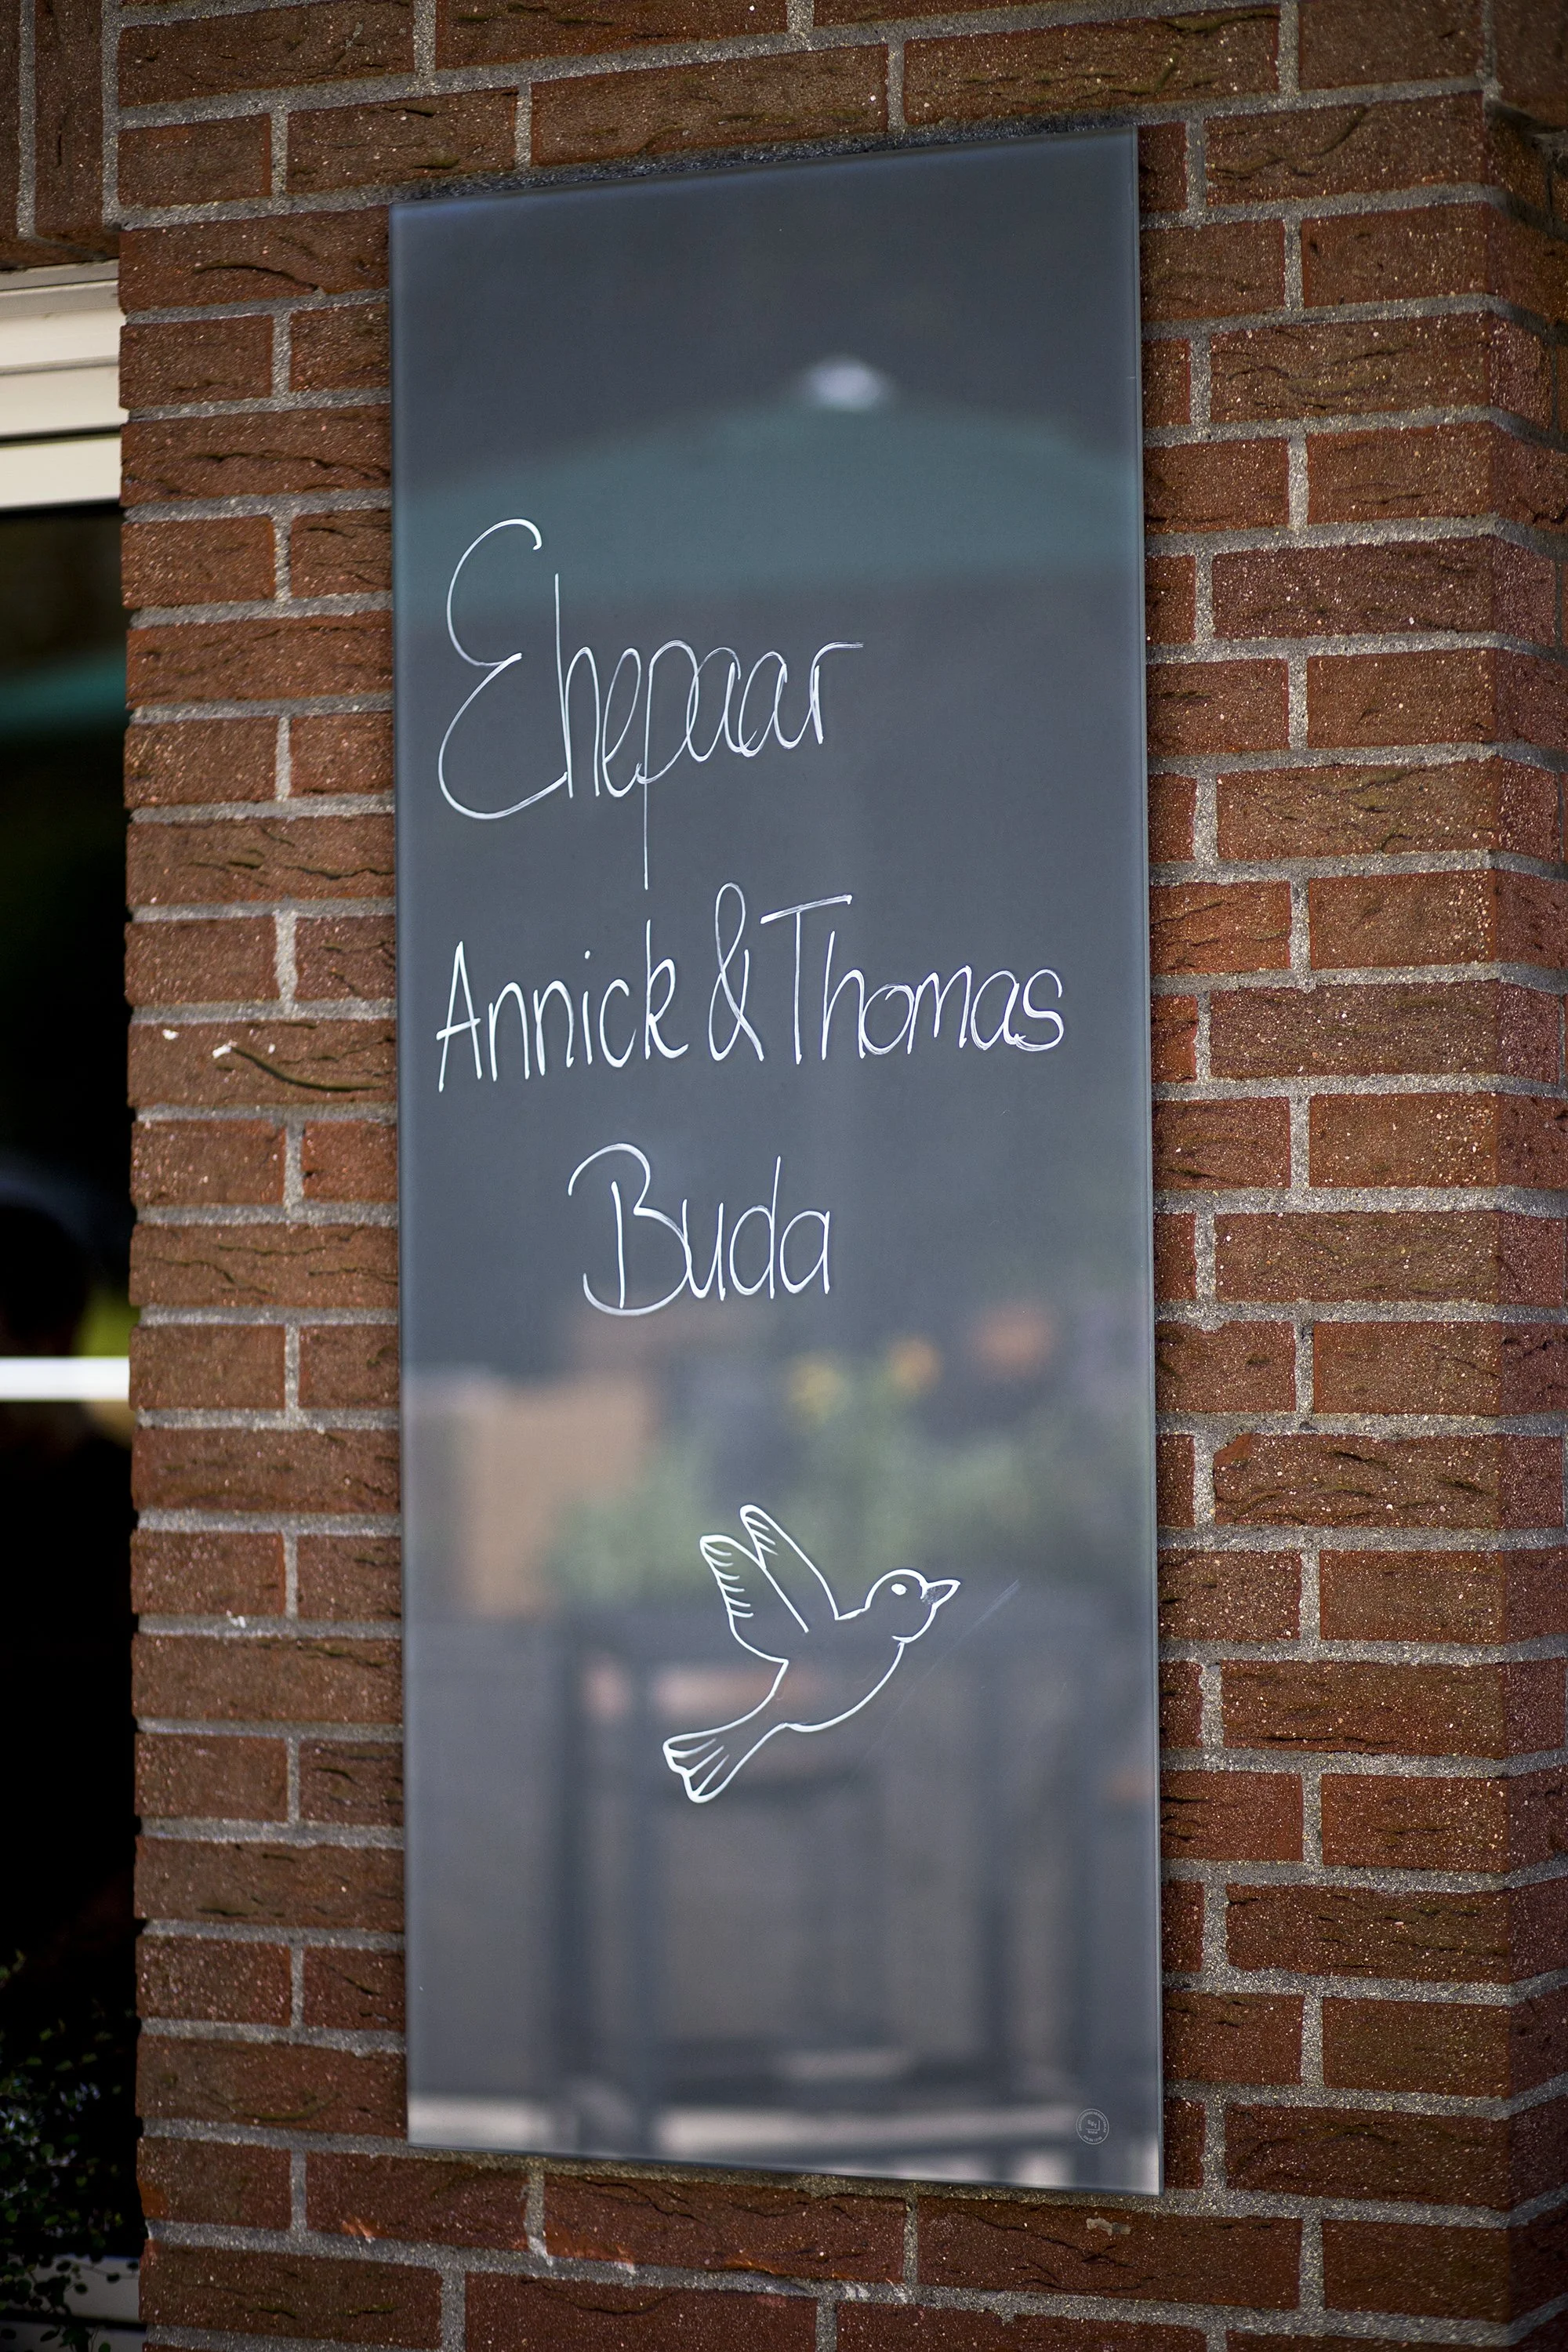 Ehepaar
Annick & Thomas
Buda